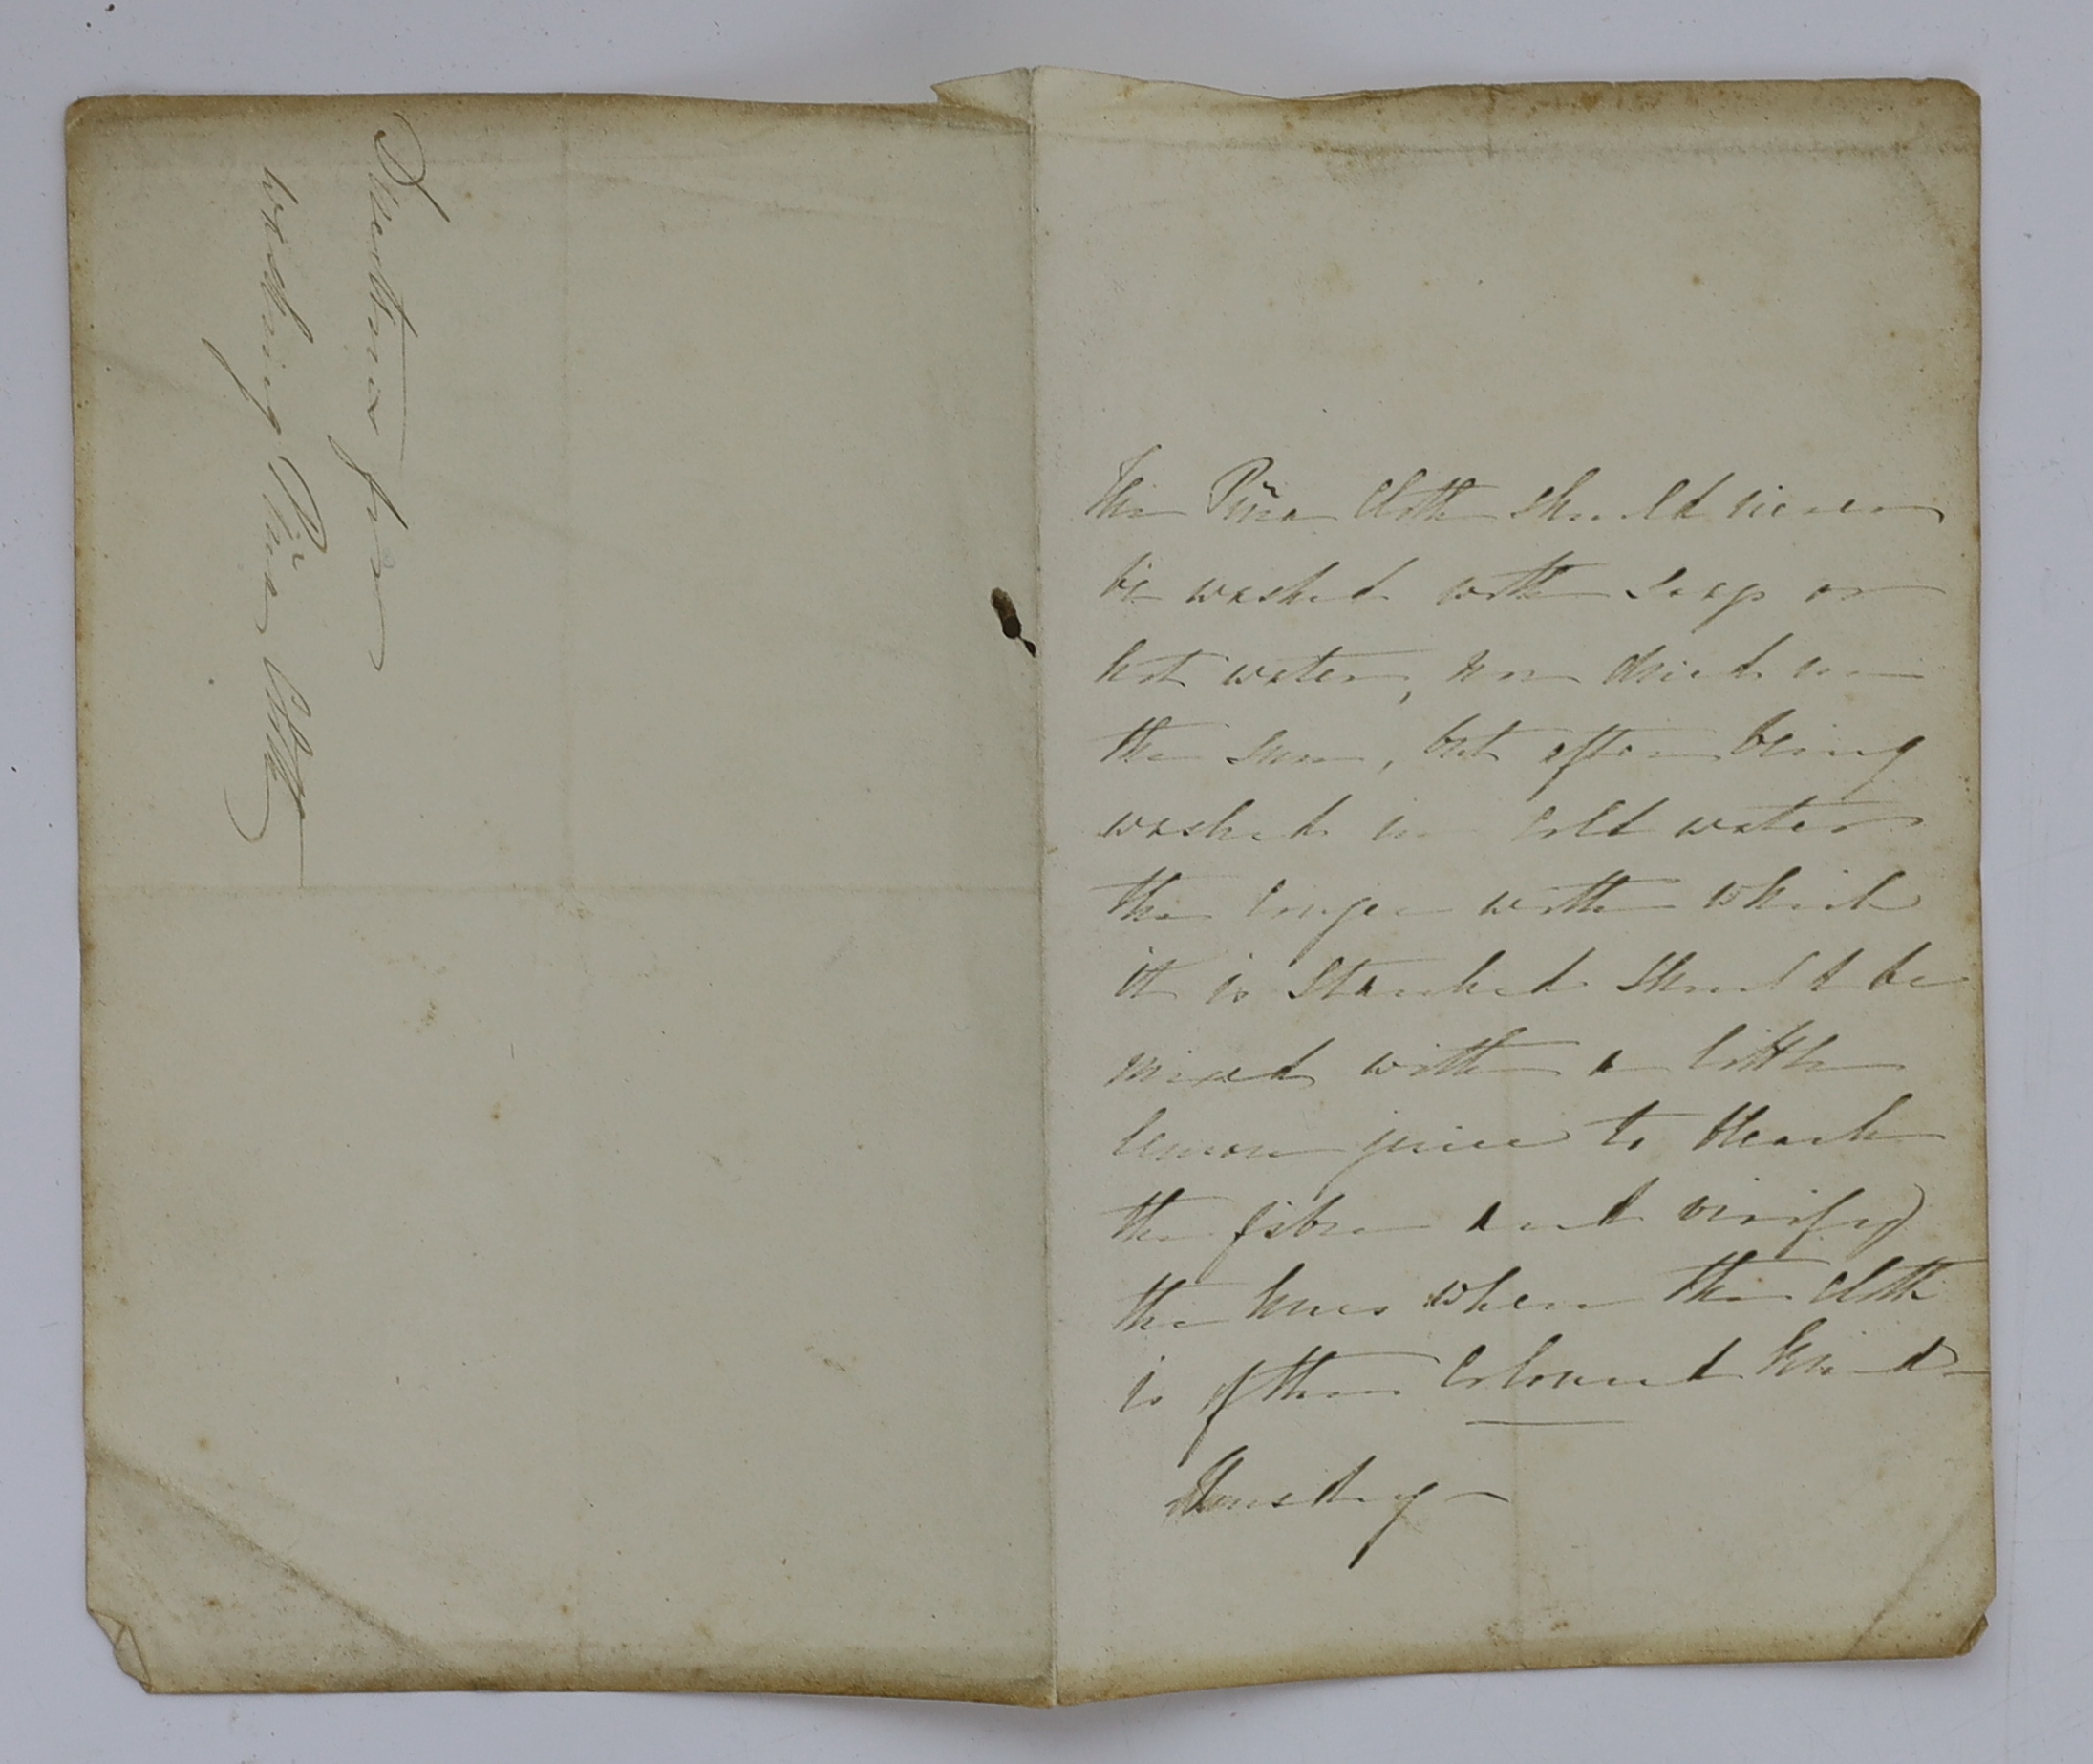 Directions for
washing Piña Cloth
The Piña Cloth should never
be washed with soap or
hot water, nor dried in
the sun, but after being
washed in cold water
the congee with which
it is starched should be
mixed with a little
lemon juice to bleach
the fibre and vivify
the hues when the cloth
is of the coloured kind
Thursday —